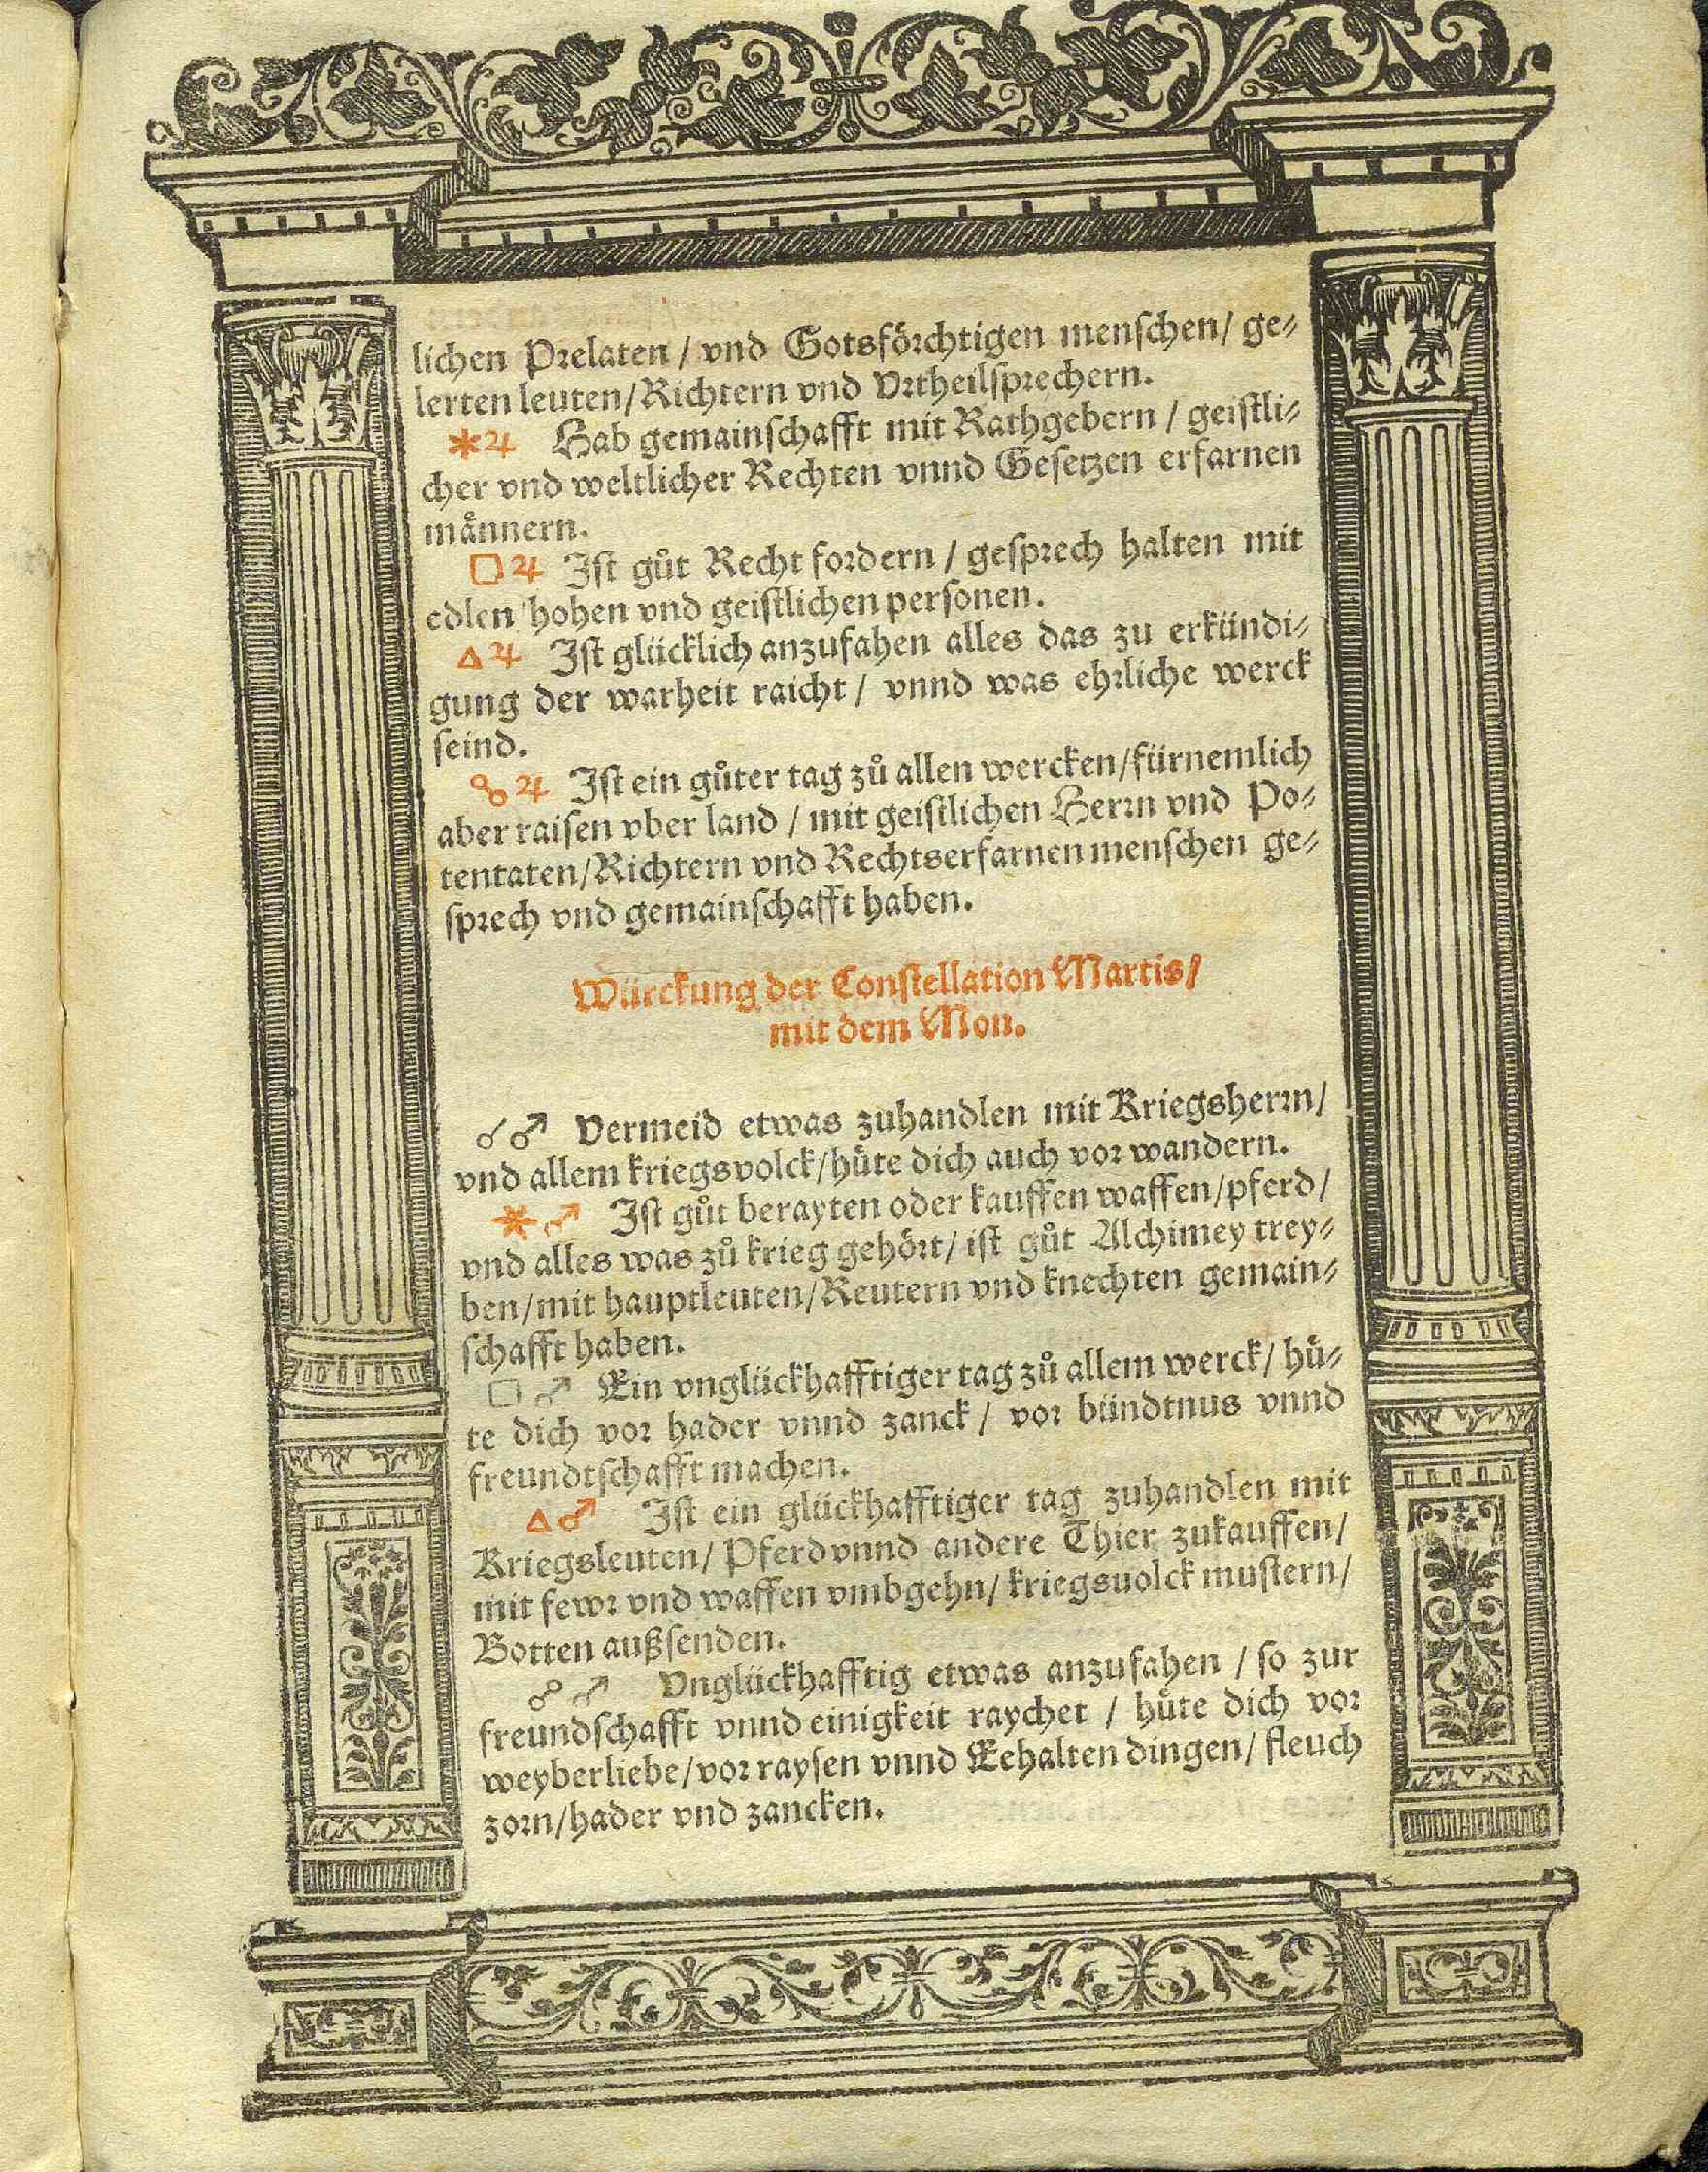 lichen Prelaten / vnd Gotsförchtigen menschen / ge⸗
lerten leuten / Richtern vnd Vrtheilsprechern.
⚹♃ Hab gemainschafft mit Rathgebern / geistli⸗
cher vnd weltlicher Rechten vnnd Gesetzen erfarnen
maͤnnern.
□♃ Ist guͦt Recht fordern / gesprech halten mit
edlen hohen vnd geistlichen personen.
△♃ Ist glücklich anzufahen alles das zu erkündi⸗
gung der warheit raicht / vnnd was ehrliche werck
seind.
☍♃ Ist ein guͦter tag zuͦ allen wercken / fürnemlich
aber raisen vber land / mit geistlichen Herrn vnd Po⸗
tentaten / Richtern vnd Rechtserfarnen menschen ge⸗
sprech vnd gemainschafft haben.
Würckung der Constellation Martis /
mit dem Mon.
☌♂ Vermeid etwas zuhandlen mit Kriegsherrn /
vnd allem kriegsvolck / huͤte dich auch vor wandern.
⚹♂ Ist guͦt berayten oder kauffen waffen / pferd /
vnd alles was zuͦ krieg gehoͤrt / ist guͦt Alchimey trey⸗
ben / mit hauptleuten / Reutern vnd knechten gemain⸗
schafft haben.
□♂ Ein vnglückhafftiger tag zuͦ allem werck / huͤ⸗
te dich vor hader vnnd zanck / vor bündtnus vnnd
freundtschafft machen.
△♂ Ist ein glückhafftiger tag zuhandlen mit
Kriegsleuten / Pferd vnnd andere Thier zukauffen /
mit fewr vnd waffen vmbgehn / kriegsuolck mustern /
Botten außsenden.
☍♂ Vnglückhafftig etwas anzufahen / so zur
freundschafft vnnd einigkeit raychet / huͤte dich vor
weyberliebe / vor raysen vnnd Eehalten dingen / fleuch
zorn / hader vnd zancken.